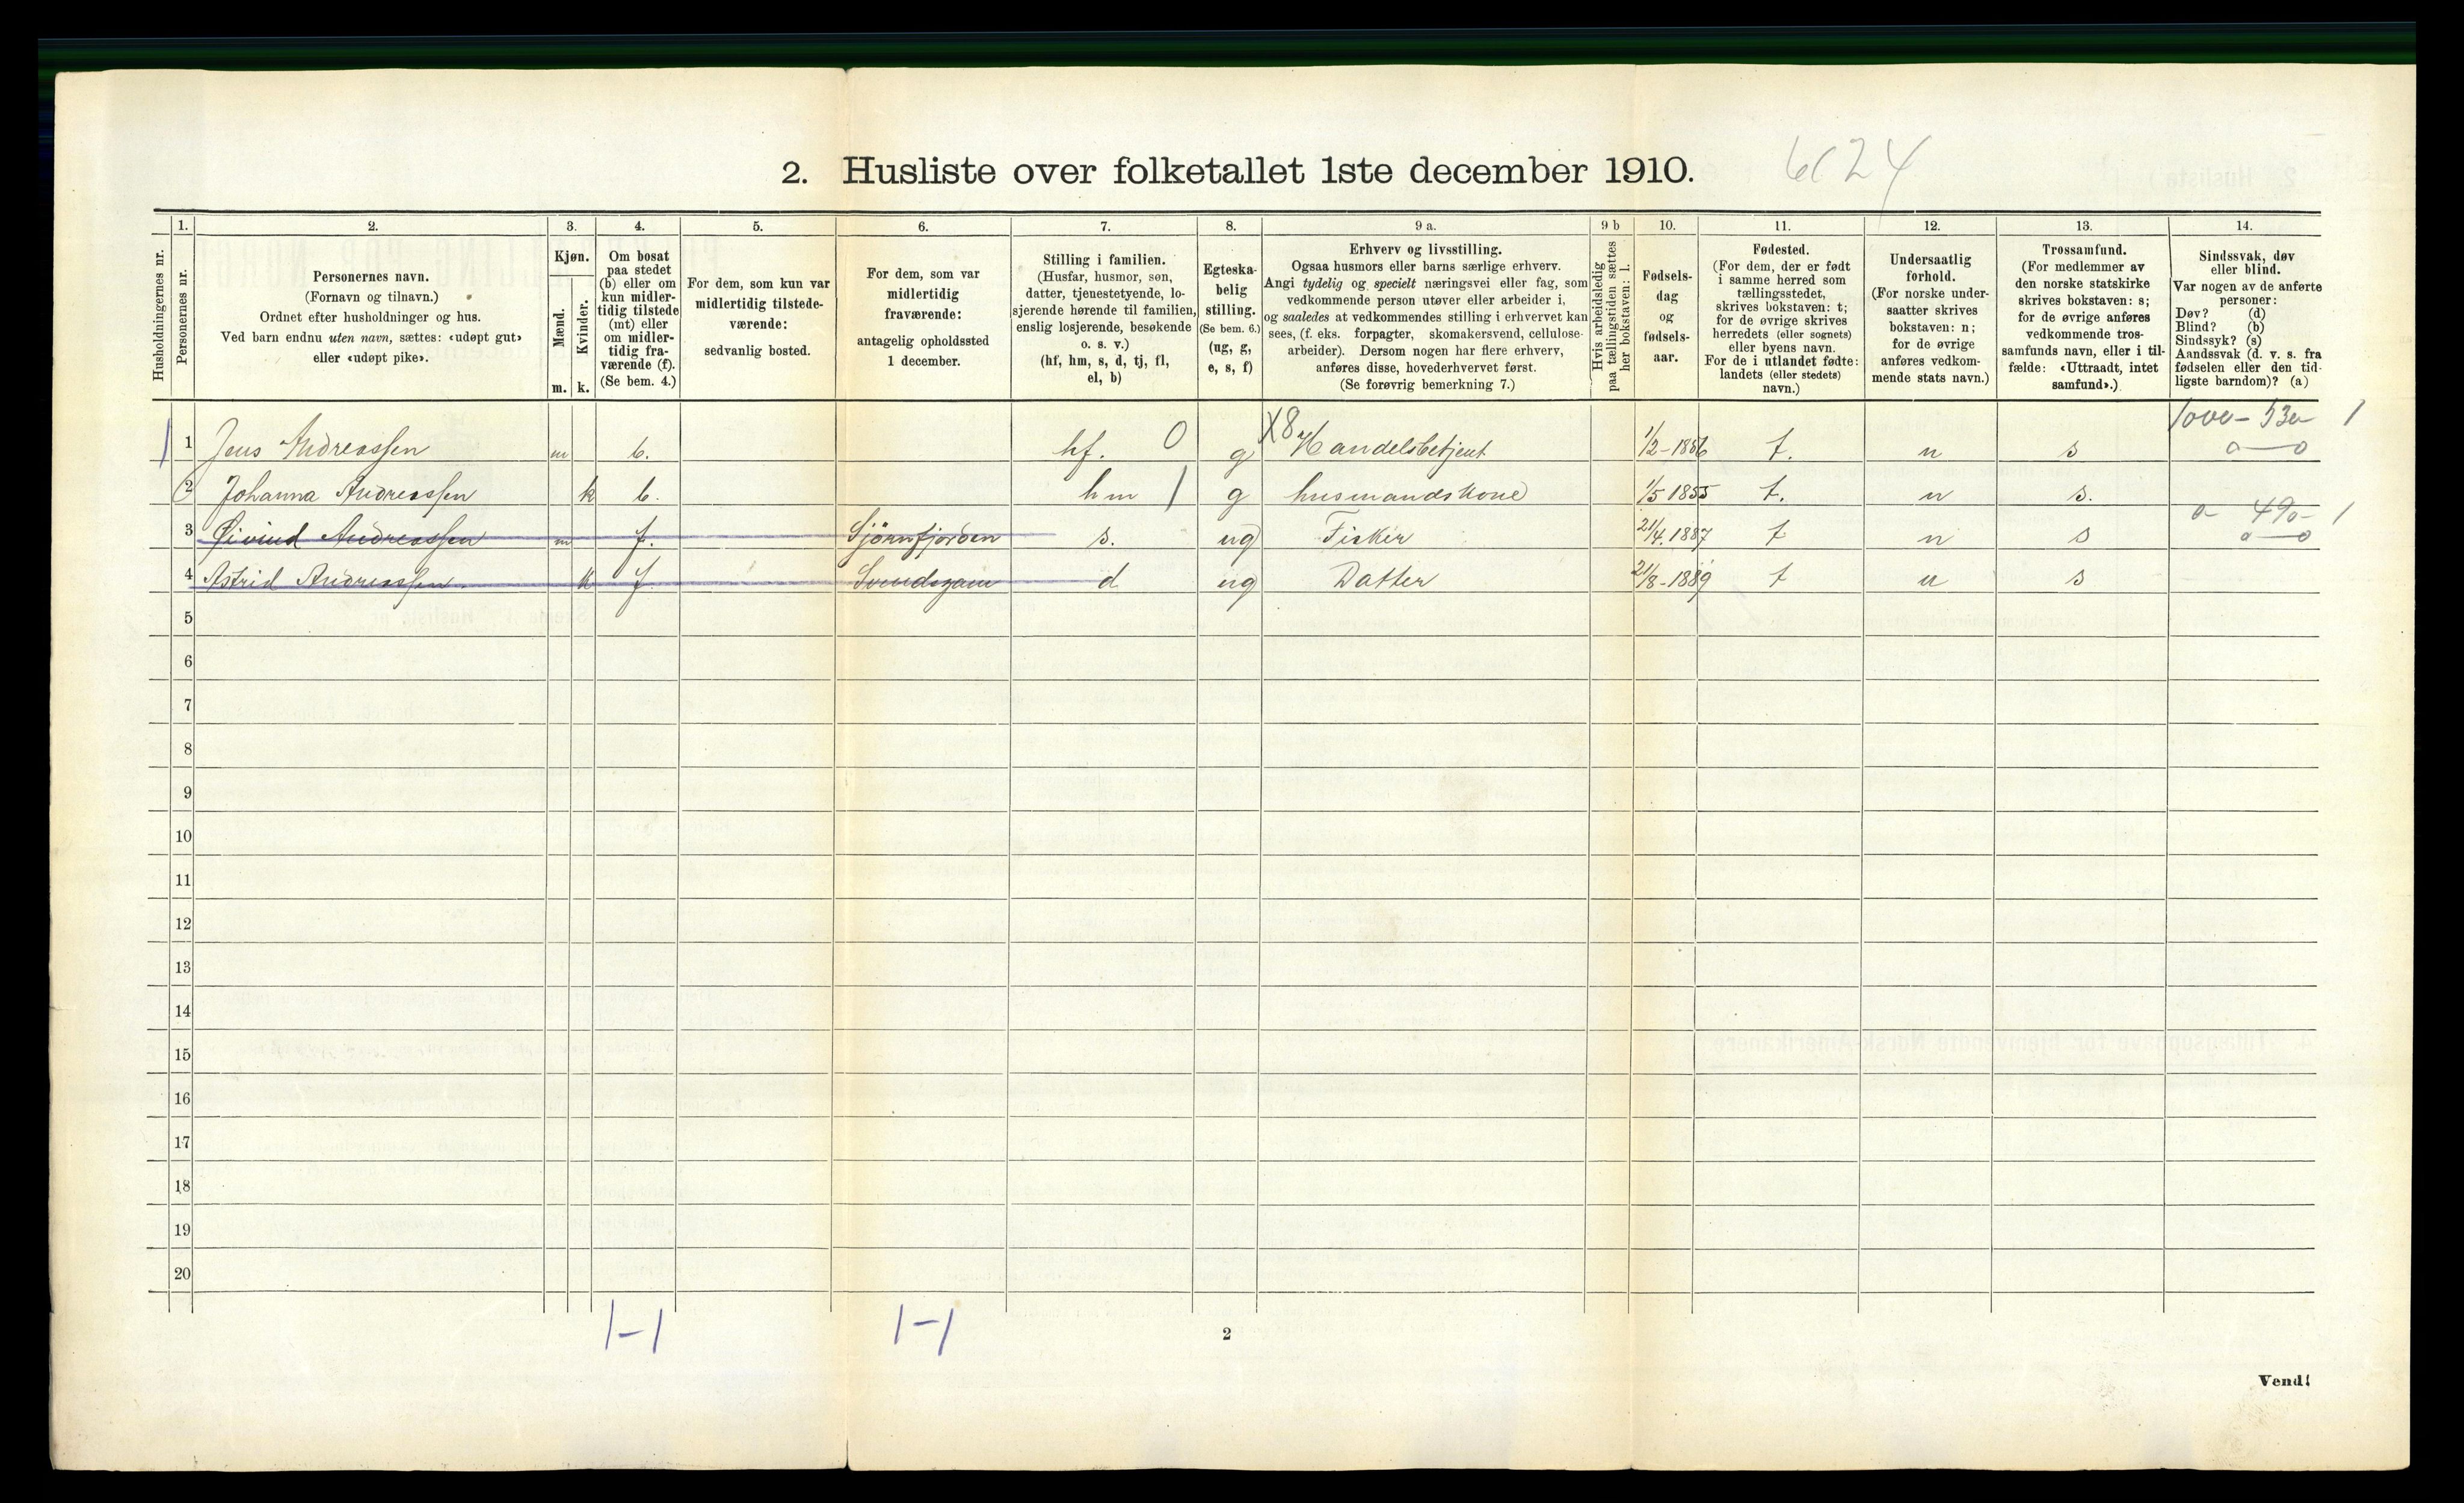 2. Husliste over folketallet 1ste december 1910. 6624
1. 2. 3. 4. 5. 6. 7. 8. 9 a. 9 b 10. 11. 12. 13. 14.
Husholdningernes nr.
Personernes nr.
Personernes navn.
(Fornavn og tilnavn.)
Ordnet efter husholdninger og hus.
Ved barn endnu uten navn, sættes: «udøpt gut»
eller «udøpt pike».
Kjøn.
Mænd.
Kvinder.
m. k.
Om bosat
paa stedet
(b) eller om
kun midler-
tidig tilstede
(mt) eller
om midler-
tidig fra-
værende (f).
(Se bem. 4.)
For dem, som kun var
midlertidig tilstede-
værende:
sedvanlig bosted.
For dem, som var
midlertidig
fraværende:
antagelig opholdssted
1 december.
Stilling i familien.
(Husfar, husmor, søn,
datter, tjenestetyende, lo-
sjerende hørende til familien,
enslig losjerende, besøkende
o. s. v.)
(hf, hm, s, d, tj, fl,
el, b)
Egteska-
belig
stilling.
(Se bem. 6.)
(ug, g,
e, s, f)
Erhverv og livsstilling.
Ogsaa husmors eller barns særlige erhverv.
Angi tydelig og specielt næringsvei eller fag, som
vedkommende person utøver eller arbeider i,
og saaledes at vedkommendes stilling i erhvervet kan
sees, (f. eks. forpagter, skomakersvend, cellulose-
arbeider). Dersom nogen har flere erhverv,
anføres disse, hovederhvervet først.
(Se forøvrig bemerkning 7.)
Hvis arbeidsledig
paa tællingstiden sættes
her bokstaven: l.
Fødsels-
dag
og
fødsels-
aar.
Fødested.
(For dem, der er født
i samme herred som
tællingsstedet,
skrives bokstaven: t;
for de øvrige skrives
herredets (eller sognets)
eller byens navn.
For de i utlandet fødte:
landets (eller stedets)
navn.)
Undersaatlig
forhold.
(For norske under-
saatter skrives
bokstaven: n;
for de øvrige
anføres vedkom-
mende stats navn.)
Trossamfund.
(For medlemmer av
den norske statskirke
skrives bokstaven: s;
for de øvrige anføres
vedkommende tros-
samfunds navn, eller i til-
fælde: «Uttraadt, intet
samfund».)
Sindssvak, døv
eller blind.
Var nogen av de anførte
personer:
Døv? (d)
Blind? (b)
Sindssyk? (s)
Aandssvak (d. v. s. fra
fødselen eller den tid-
ligste barndom)? (a)
1 1 Jens Andreassen m b. hf. 0 g X8 Handelsbetjent 1/2-1856 t. n s
2 Johanna Andreassen k b. hm 1 g husmandskone 1/5 1855 t. n s.
3 Øivind Andreassen m f. Sjørnfjorden s. ug Fisker 21/4.1887 t n s
4 Astrid Andreassen k f. d ug Datter 21/8-1889 t n s
5
6
7
8
9
10
11
12
13
14
15
16
17
18
19
20
1-1 1-1
2
Vend!